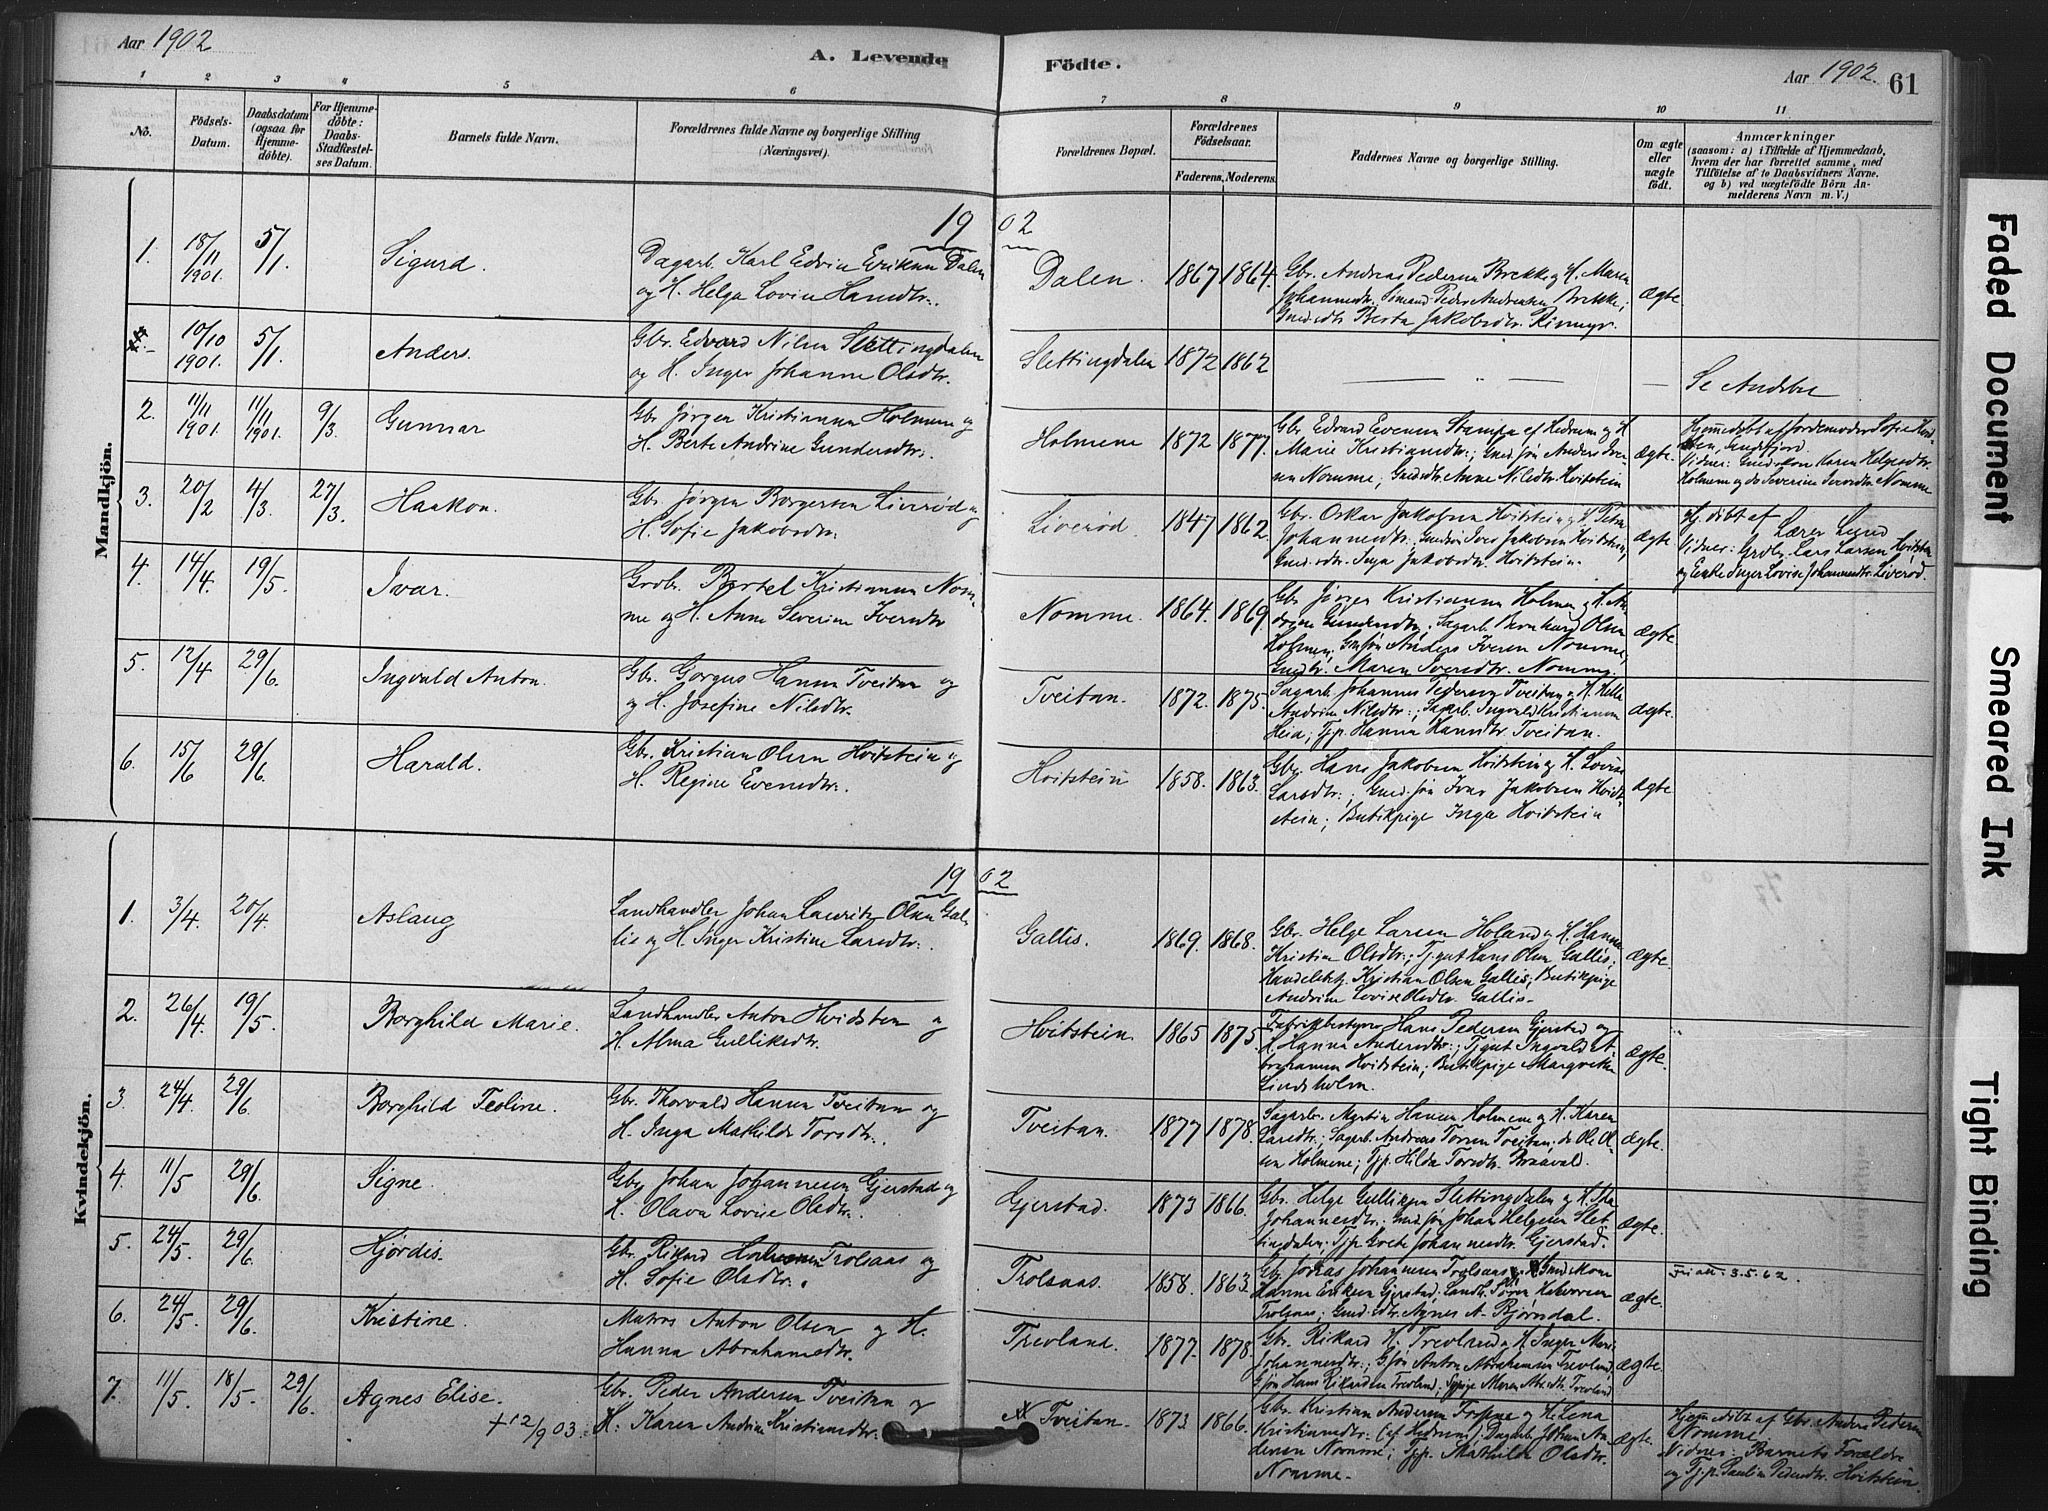 Aar 1902
A. Levende
Födte.
Aar 1902.
61
1 2 3 4 5 6 7 8 9 10 11
No.
Födsels-
Datum.
Daabsdatum
(ogsaa for
Hjemme-
döbte).
For Hjemme-
döbte:
Daabs-
Stadfæstel-
ses Datum.
Barnets fulde Navn.
Forældrenes fulde Navne og borgerlige Stilling
(Næringsvei).
Forældrenes Bopæl.
Forældrenes
Födselsaar.
Faderens. Moderens.
Faddernes Navne og borgerlige Stilling.
Om ægte
eller
uægte
födt.
Anmærkninger
(saasom: a) i Tilfælde af Hjemmedaab,
hvem der har forrettet samme, med
Tilföielse af to Daabsvidners Navne.
og b) ved uægtefödte Börn An-
melderens Navn m. V.)
Mandkjön.
1902
1. 18/11 1901. 5/1. Sigurd.
Dagarb. Karl Edvin Eriksen Dalen
og H. Helga Lovise Hansdtr.
Dalen. 1867 1864.
Gbr. Andreas Pedersen Brekke og H. Maren
Johannesdtr. Sömand Peder Andreassen Brekke;
Gmd.dtr. Berta Jakobsdtr.
ægte.
10/10 1901. 5/1. Anders.
Gbr. Edvard Nilsen Slettingdalen
og H. Inger Johanne Olsdtr.
Slettingdalen 1872 1862
— — — Se Andebu
2. 11/11 1901. 11/11 1901. 9/3. Gunnar
Gbr. Jörgen Kristiansen Holmene og
H. Berte Andrine Gundersdtr.
Holmene 1872 1877.
Gbr. Edvard Evensen Stampa af Hedrum og H.
Marie Kristiansdtr.; Gmd.sön Anders Iver-
sen Nomme; Gmd.dtr. Anne Nilsdtr. Hvitstein
ægte.
Hjemmedöbt af Jordemoder Sofie
Sandefjord.
Vidner: Gmdskone Karen Helgesdtr.
Holmene og do Severine Iversdtr. Nomme
3. 20/2 4/3. 27/3. Haakon.
Gbr. Jörgen Borgersen Liveröd og
H. Sofie Jakobsdtr.
Liveröd. 1847 1862.
Gbr. Oskar Jakobsen Hvitstein og H. Petra
Johannesdtr.; Gmdsön Iver Jakobsen Hvitstein,
Gmd.dtr. Inga Jakobsdtr. Hvitstein.
ægte.
Hj. döbt af Lærer
Vidner: Grdbr. Lars Larsen Hvitstein
og Enke Inger Lovise Johannesdtr. Liveröd.
4. 14/4. 19/5. Ivar.
Grdbr. Bertel Kristiansen Nom-
me og H. Anne Severine Iversdtr
Nomme. 1864. 1869.
Gbr. Jörgen Kristiansen Holmen og H. An-
drine Gundersdtr.; Sagarb. Bernhard Olsen
Holmen; Gmsön Anders Iversen Nomme;
Gmdtr. Maren Iversdtr. Nomme.
ægte.
5. 12/4 29/6. Ingvald Anton.
Gbr. Gorgus Hansen Tveitan og
og H. Josefine Nilsdtr.
Tveitan. 1872. 1875.
Sagarb. Johannes Pedersen Tveitan og H. Helle
Andrine Nilsdtr.; Sagarb. Ingvald Kristiansen
Heia; Tjp. Hanna Hansdtr. Tveitan.
ægte.
6. 15/6 29/6. Harald.
Gbr. Kristian Olsen Hvitstein og
H. Regine Evensdtr.
Hvitstein 1858. 1863.
Gbr. Hans Jakobsen Hvitstein og H. Lovise
Larsdtr.; Gmd.sön Iver Jakobsen Hvidt-
stein; Butikpige Inga Hvitstein
ægte
Kvindekjön.
1902
1. 3/4. 20/4. Aslaug
Landhandler Johan Lauritz Olsen Gal-
lis og H. Inger Kristine Larsdtr.
Gallis. 1869. 1868.
Gbr. Helge Larsen Holand og H. Hanna
Kristine Olsdtr.; Tj.gut Hans Olsen Gallis;
Handelsbet. Kristian Olsen Gallis; Butikpige
Andrine Lovise Olsdtr. Gallis.
ægte.
2. 26/4 19/5. Borghild Marie.
Landhandler Anton Hvidsten og
H. Alma Gulliksdtr.
Hvitstein. 1865 1875.
Fabrikbestyrer Hans Pedersen Gjerstad og
H. Hanna Andersdtr.; Tj.gut Ingvald A-
brahamsen Hvidstein; Butikpige Margrethe
Lindsholm.
ægte.
3. 24/4. 29/6. Borghild Teoline.
Gbr. Thorvald Hansen Tveitan og
H. Inga Mathilde Torsdtr.
Tveitan. 1877 1878.
Sagarb. Martin Hansen Holmene og H. Karen
Larsdtr.; Sagarb. Andreas Torsen Tveitan; do Ole Ol-
sen Holmene; Tjp. Hilda Torsdtr. Braavald.
ægte.
4. 11/5 29/6. Signe.
Gbr. Johan Johannesen Gjerstad og
H. Olava Lovise Olsdtr.
Gjerstad. 1873 1866.
Gbr. Helge Gulliksen Slettingdalen og H.
Johannesdtr. Gmd.sön Johan Helgesen Slet-
tingdalen; Tjp. Grete Johannesdtr. Gjerstad.
ægte.
5. 24/5. 29/6. Hjördis.
Gbr. Rikard Trolsaas og
H. Sofie Olsdtr.
Trolsaas. 1858. 1863.
Gbr. Johannesen Trolsaas; Gmdskone
Hanne Eriksen Gjerstad; Sören Halvorsen
Trolsaas; Gmd.dtr. Agnes A. Bjørndal.
ægte.
Fri att. 3.5.62.
6. 24/5. 29/6. Kristine.
Matros Anton Olsen og H.
Hanna Abrahamsdtr.
Trevland. 1877. 1878.
Gbr. Rikard H. Trevland og H. Inger Marie
Johannesdtr.; Gsön Anton Abrahamsen Trevland,
Gsön Hans Rikardsen Trevland; Maren Trevland
ægte.
7. 11/5. 18/5. 29/6. Agnes Elise.
+ 12/9 03.
Gbr. Peder Andersen Tveitan og
H. Karen Andrine Kristiansdtr.
Tveitan. 1873. 1866.
Gbr. Kristian Andersen og H. Lena
Kristiansdtr. (af Hedrum); Dagarb. Johan An-
dersen Nomme; Tjp. Mathilde Olsdtr.
Nomme.
ægte.
Hjemmedöbt af Gbr. Anders Pedersen
Nomme
Vidner: Barnets Forældre
og Tj.p. Pauline Pedersdtr. Hvitstein.
Faded Document
Smeared Ink
Tight Binding